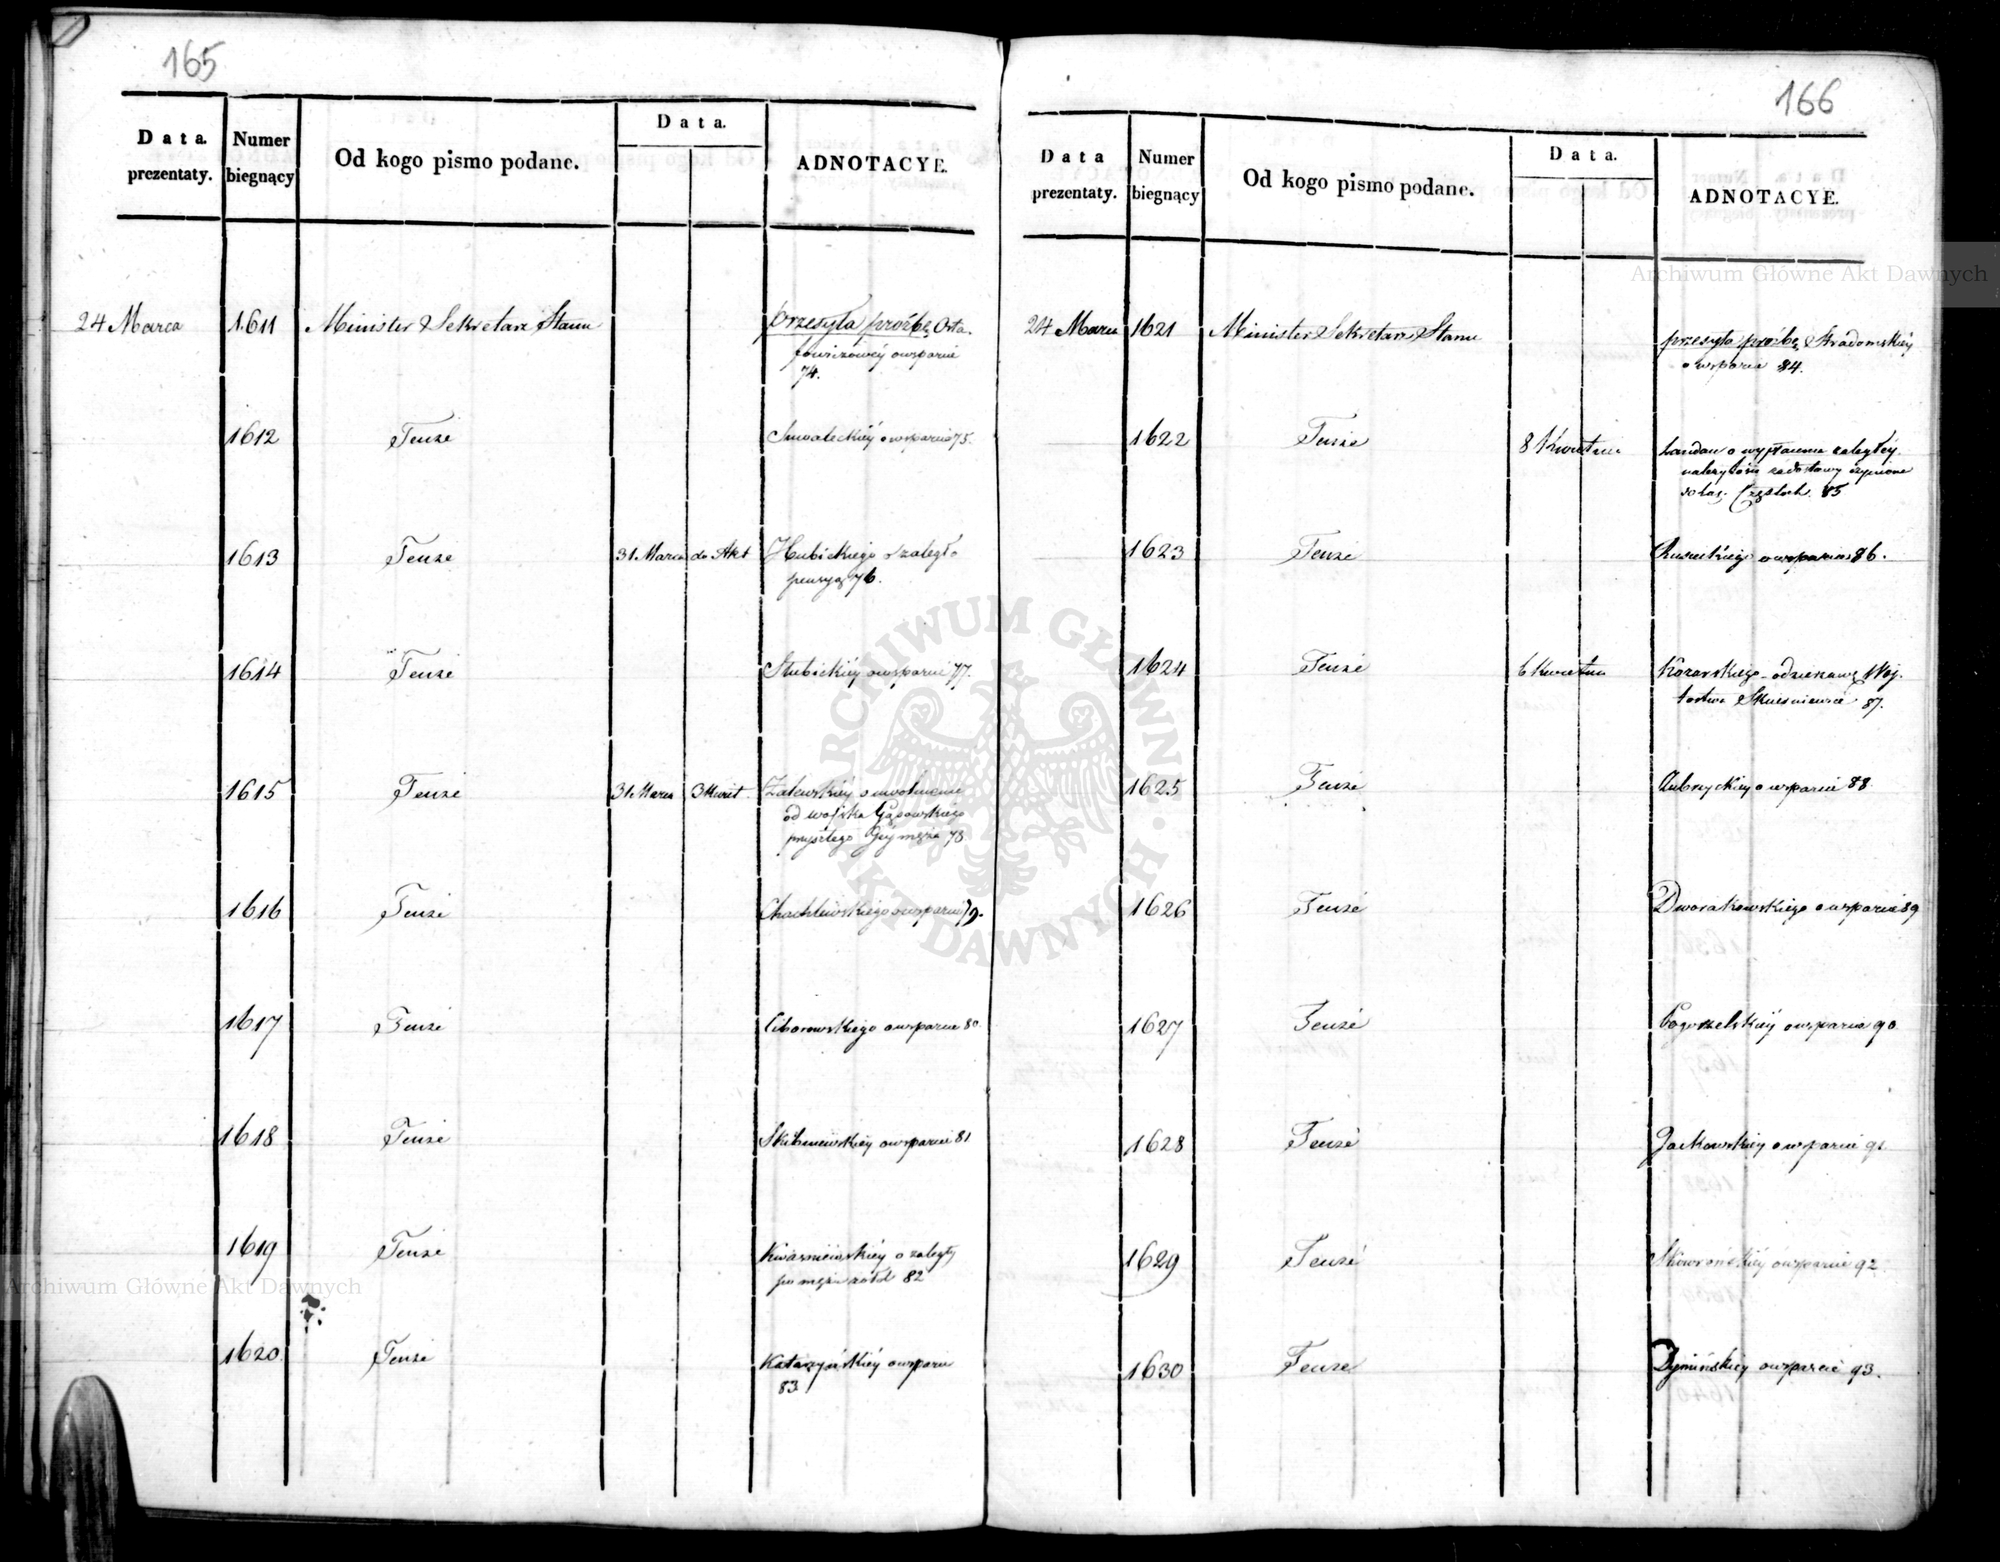 165
Data. prezentaty.
Numer biegnący
Od kogo pismo podane.
Data.
ADNOTACYE.
24 Marca 1611 Minister Sekretarz Stanu przesyła proźbę Orta-
owsparcie
74.
1612 Tenże owsparcie 75.
1613 Tenże 31. Marca do Akt Hubickiego o zaległą
pensyą 76.
1614 Tenże Stubickiéy owsparcie 77.
1615 Tenże 31. Marca 3 Kwiet. Zalewskiéy o uwolnienie
od woyska Gąsowskiego
przyszłego Jéy męża 78
1616 Tenże owsparcie 79.
1617 Tenże Ciborowskiego owsparcie 80.
1618 Tenże Skibniewskiéy owsparcie 81
1619 Tenże Kwaśniewskiéy o zaległy
po mężu żołd 82
1620 Tenże Katarzyńskiéy owsparcie
83
166
Data prezentaty.
Numer biegnący
Od kogo pismo podane.
Data.
ADNOTACYE.
24 Marca 1621 Minister Sekretarz Stanu przesyła proźbę Stradomskiéy
o wsparcie 84.
1622 Tenże 8 Kwietnia Landau o wypłacenie zaległéy
należytości za dostawy czynione
85
1623 Tenże owsparcie 86.
1624 Tenże 6 Kwietnia Kozarskiego o dzierzawę Wój-
tostwa Skierniewice 87.
1625 Tenże owsparcie 88.
1626 Tenże Dworakowskiego owsparcie 89
1627 Tenże Pogorzelskiéy owsparcie 90
1628 Tenże Jackowskiéy owsparcie 91
1629 Tenże Skowrońskiéy owsparcie 92
1630 Tenże Dymińskiéy owsparcie 93.
Archiwum Główne Akt Dawnych
Archiwum Główne Akt Dawnych
ARCHIWUM GŁÓWNE AKT DAWNYCH